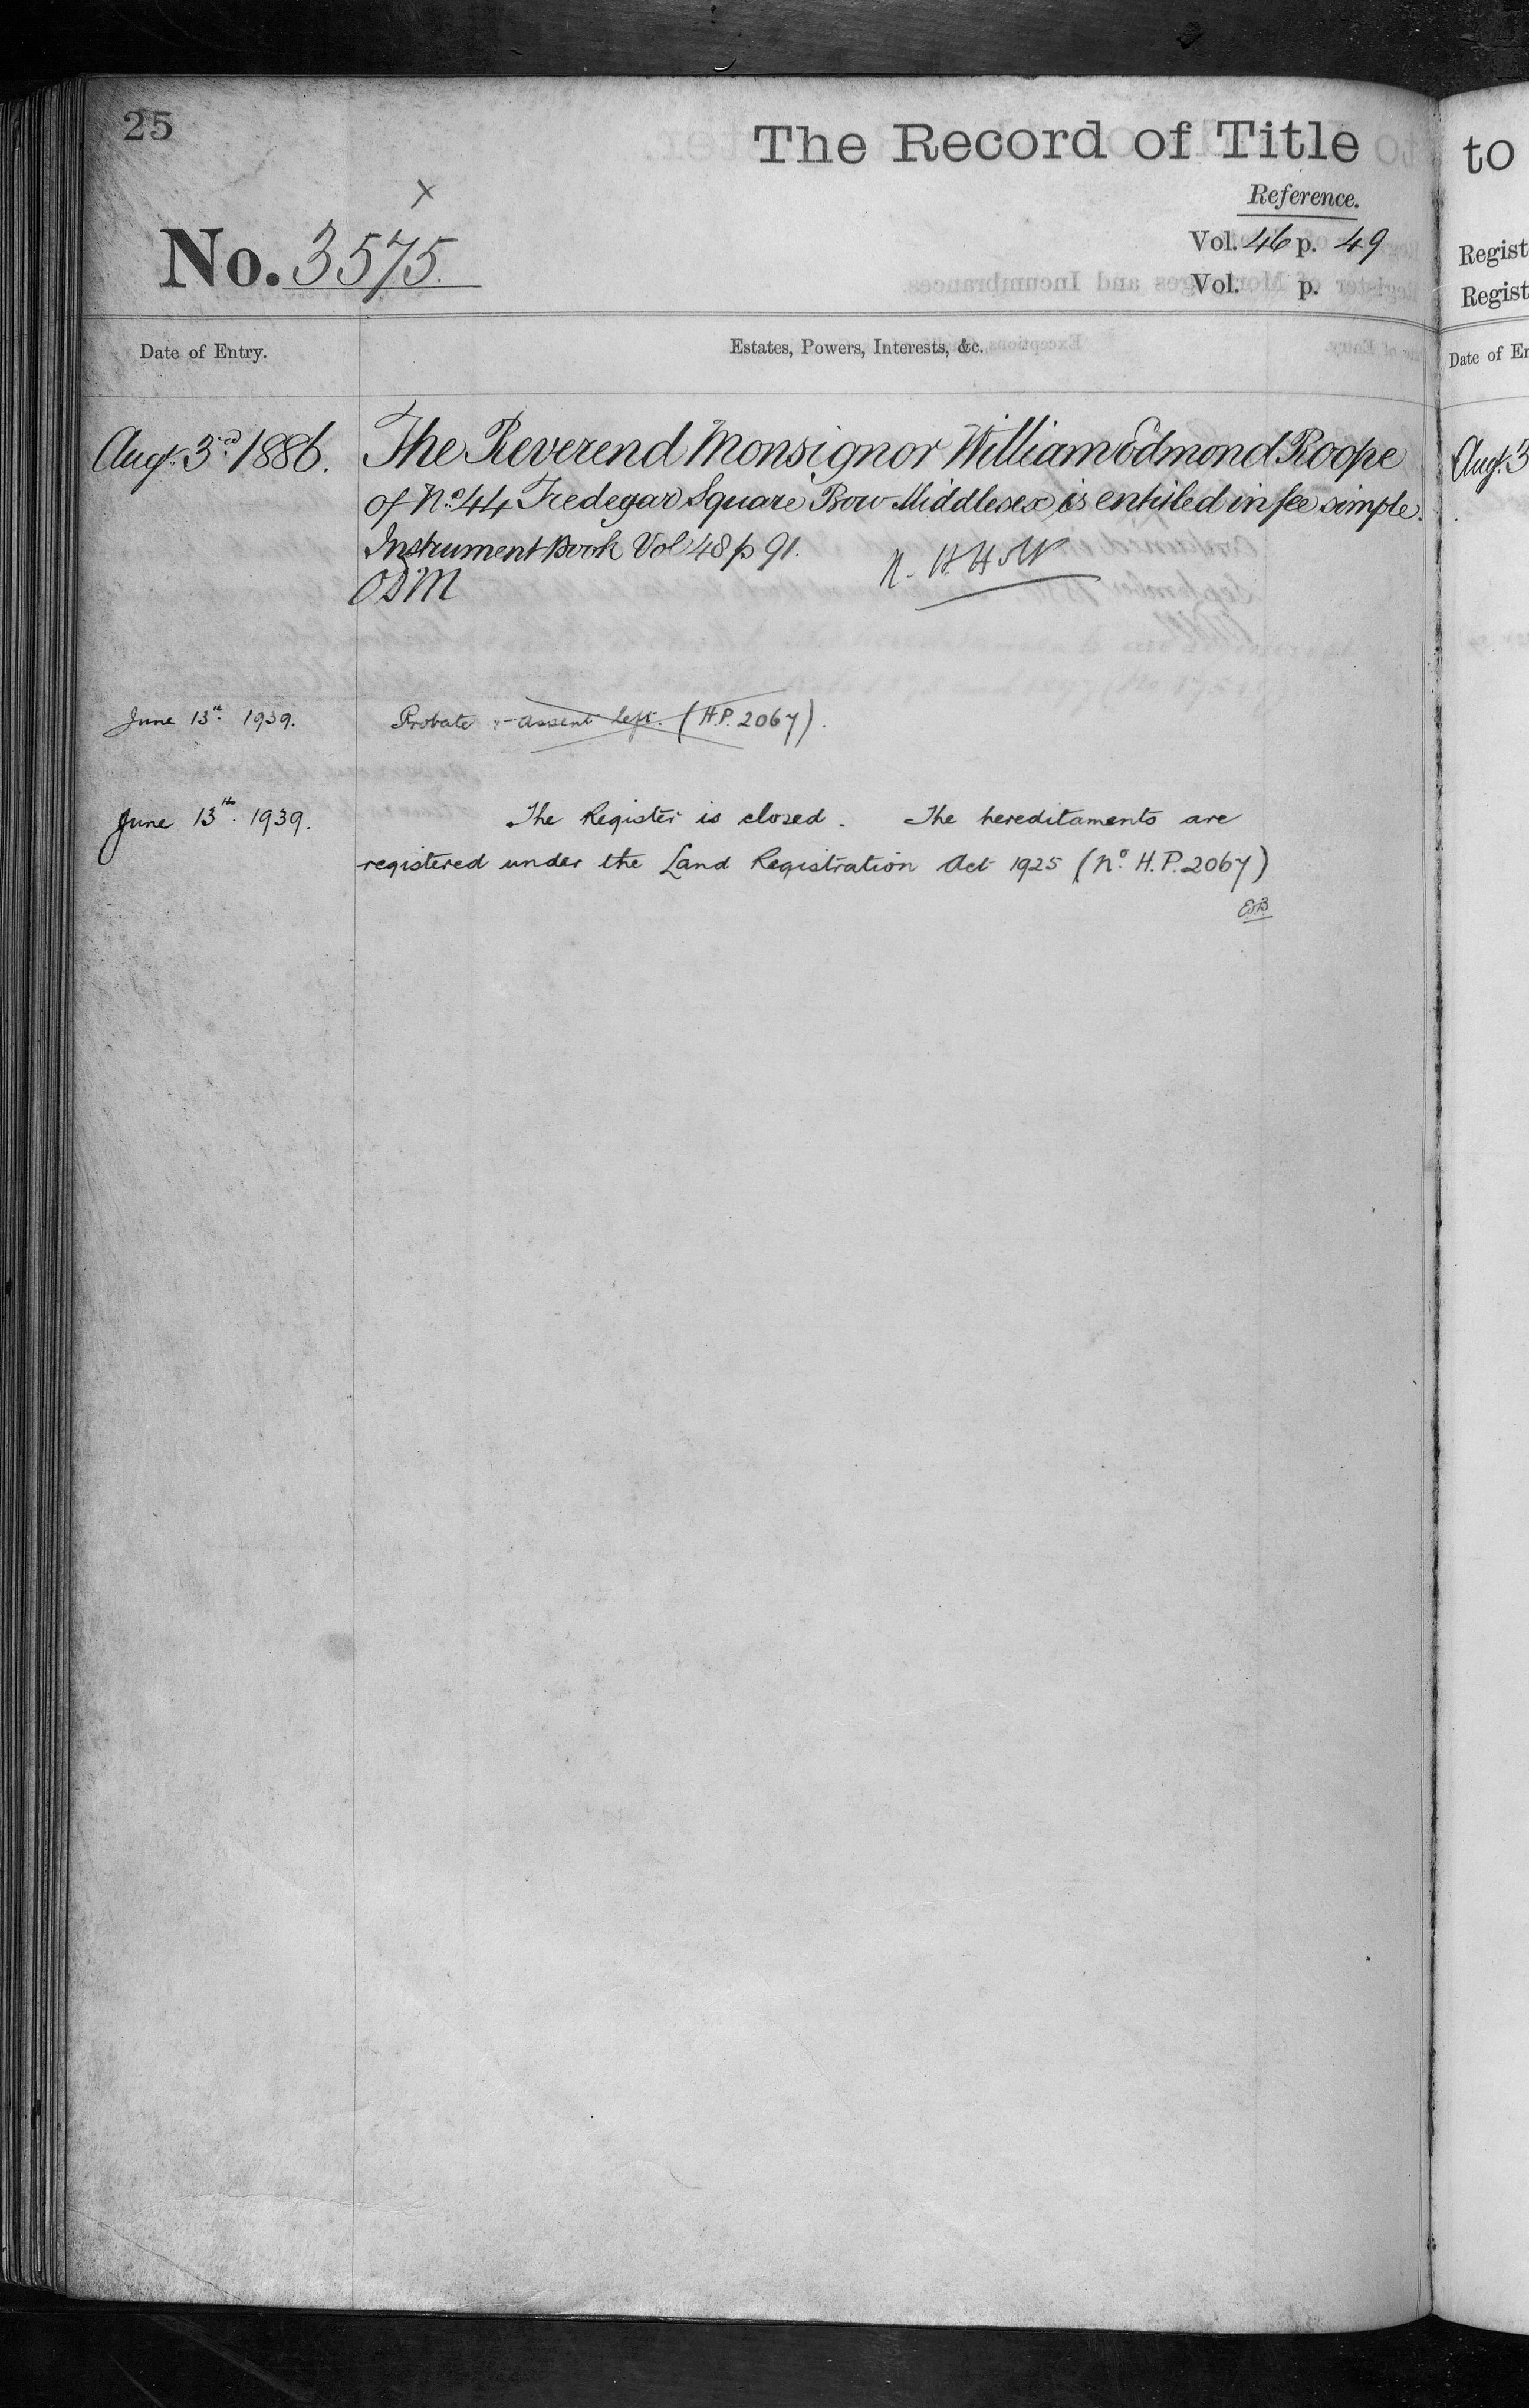 25
The Record of Title
to
Reference.
x
No. 3575.
Vol. 46 p. 49
Vol. p.
Regist
Regist
Date of Entry.
Estates, Powers, Interests, &c.
Date of En
Aug. 3rd 1886.
The Reverend Monsignor William Edmond Roope
of No. 44 Tredegar Square Bow Middlesex is entitled in fee simple.
Instrument Book Vol 48 p 91.
Aug. 3
June 13th 1939.
Probate & assent left. (H.P. 2067).
June 13th. 1939.
The Register is closed. The hereditaments are
registered under the Land Registration Act 1925 (No. H.P. 2067)